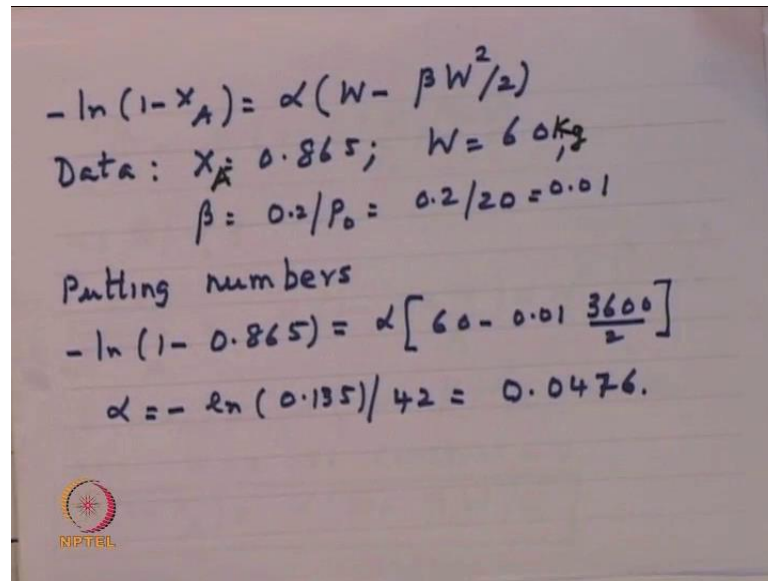 -ln(1-X_A) = α(W - βW²/2)
Data: X_A = 0.865; W = 60 Kg,
β = 0.2/P₀ = 0.2/20 = 0.01
Putting numbers
-ln(1-0.865) = α[60 - 0.01 3600/2]
α = - ln(0.135)/42 = 0.0476.
NPTEL